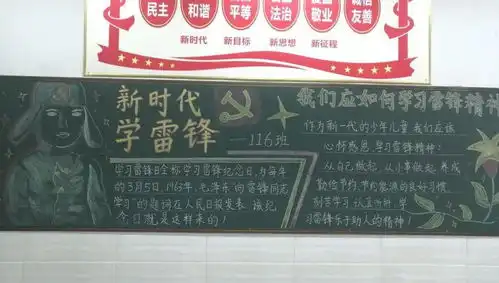 民主 和谐 平等 法治 敬业 友善
新时代 新目标 新思想 新征程
新时代
学雷锋
116班
学习雷锋日全称学习雷锋纪念日,为每年
的3月5日,1963年,毛泽东的"雷锋同志
学习"的题词在人民日报发表,该纪
念日就是这样来的!
我们应如何学习雷锋精神
作为新一代的少年儿童 我们应该
心怀感恩,学习雷锋精神:
从自己做起,从小事做起,养成
勤俭节约,节约能源的良好习惯
刻苦学习,认真听讲,学
习雷锋乐于助人的精神!